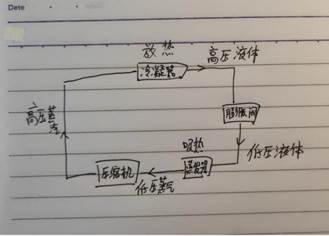 Date
放热
冷凝器
高压液体
膨胀阀
低压液体
吸热
蒸发器
低压蒸气
压缩机
高压蒸气